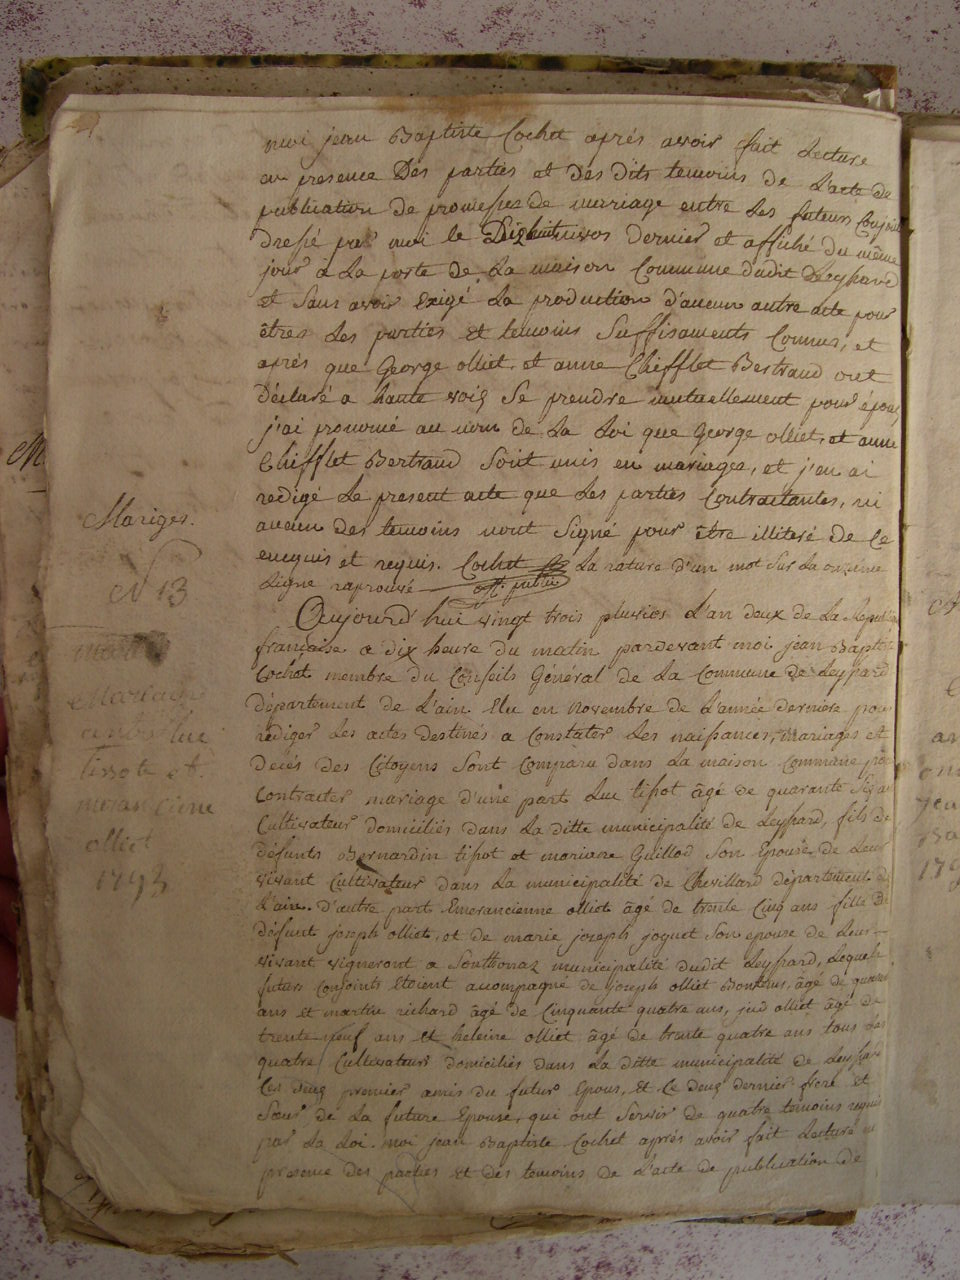 moi jean Baptiste Cochet aprés avoir fait Lecture
en presence Des parties et des dits temoins de L'acte de
publication de promesses de mariage entre Les futeurs Conjoints
dressé par moi le Dizhuit nivos dernier et affiché du même
jour a La porte de La maison Commune dudit Leyssard
et Sans avoir Exigé La production d'aucun autre acte pour
êtres Les parties et temoins Suffisaments Connus, et
aprés que George olliet et anne Chifflet Bertrand ont
Déclaré a haute voix Se prendre mutuellement pour époux
j'ai prononcé au nom de La Loi que George olliet, et anne
Chifflet Bertrand Sont unis en mariages, et j'en ai
redigé Le present acte que Les parties Contractantes, ni
aucun des temoins n'ont Signé pour être illiteré de Ce
enequis et requis. Cochet La rature d'un mot Sur La onzieme
Ligne raprouvé off. public
Mariges.
N 13
Aujourd'hui vingt trois pluvios L'an deux de La Republi
française a dix heure du matin pardevant moi jean Baptiste
Cochet membre du Conseils Général de La Commune de Leyssard
département de L'ain Elu en Novembre de L'année derniere pour
rediger Les actes destinés a Constater Les naissances, mariages et
Decés des Citoyens Sont Comparu dans La maison Commune pour
Contracter mariage d'une part Luc tissot âgé de quarante Six ans
Cultivateur domiciliés dans La ditte municipalité de Leyssard, fils de
défunts Bernardin tissot et mariane Guillod Son Epouse de Leur
vivant Cultivateur dans La municipalité de Chevillard département de
L'ain. d'autre part Emerancienne olliet âgé de trente Cinq ans fille De
défunt joseph olliet, et de marie joseph joguet Son epouse de Leur
vivant vigneront a Sonthonaz municipalité dudit Leyssard, Lequels
futurs Conjoints Etoient acompagné de joseph olliet Bonthus, âgé de quarante
ans et martin richard âgé de Cinquante quatre ans, jud olliet âgé de
trente neuf ans et heleine olliet âgé de trante quatre ans tous Les
quatre Cultivateurs domiciliés dans La ditte municipalité de Leyssard
Les deux premier amis du futur Epous, et Le deux dernier frere et
Sœur de La future Epouse, qui ont Servir de quatre temoins requis
par La Loi. moi jean Baptiste Cochet aprés avoir fait Lecture en
presence des parties et des temoins de L'acte de publication de
Mariage
entre luc
tissot et
meranciene
olliet
1793